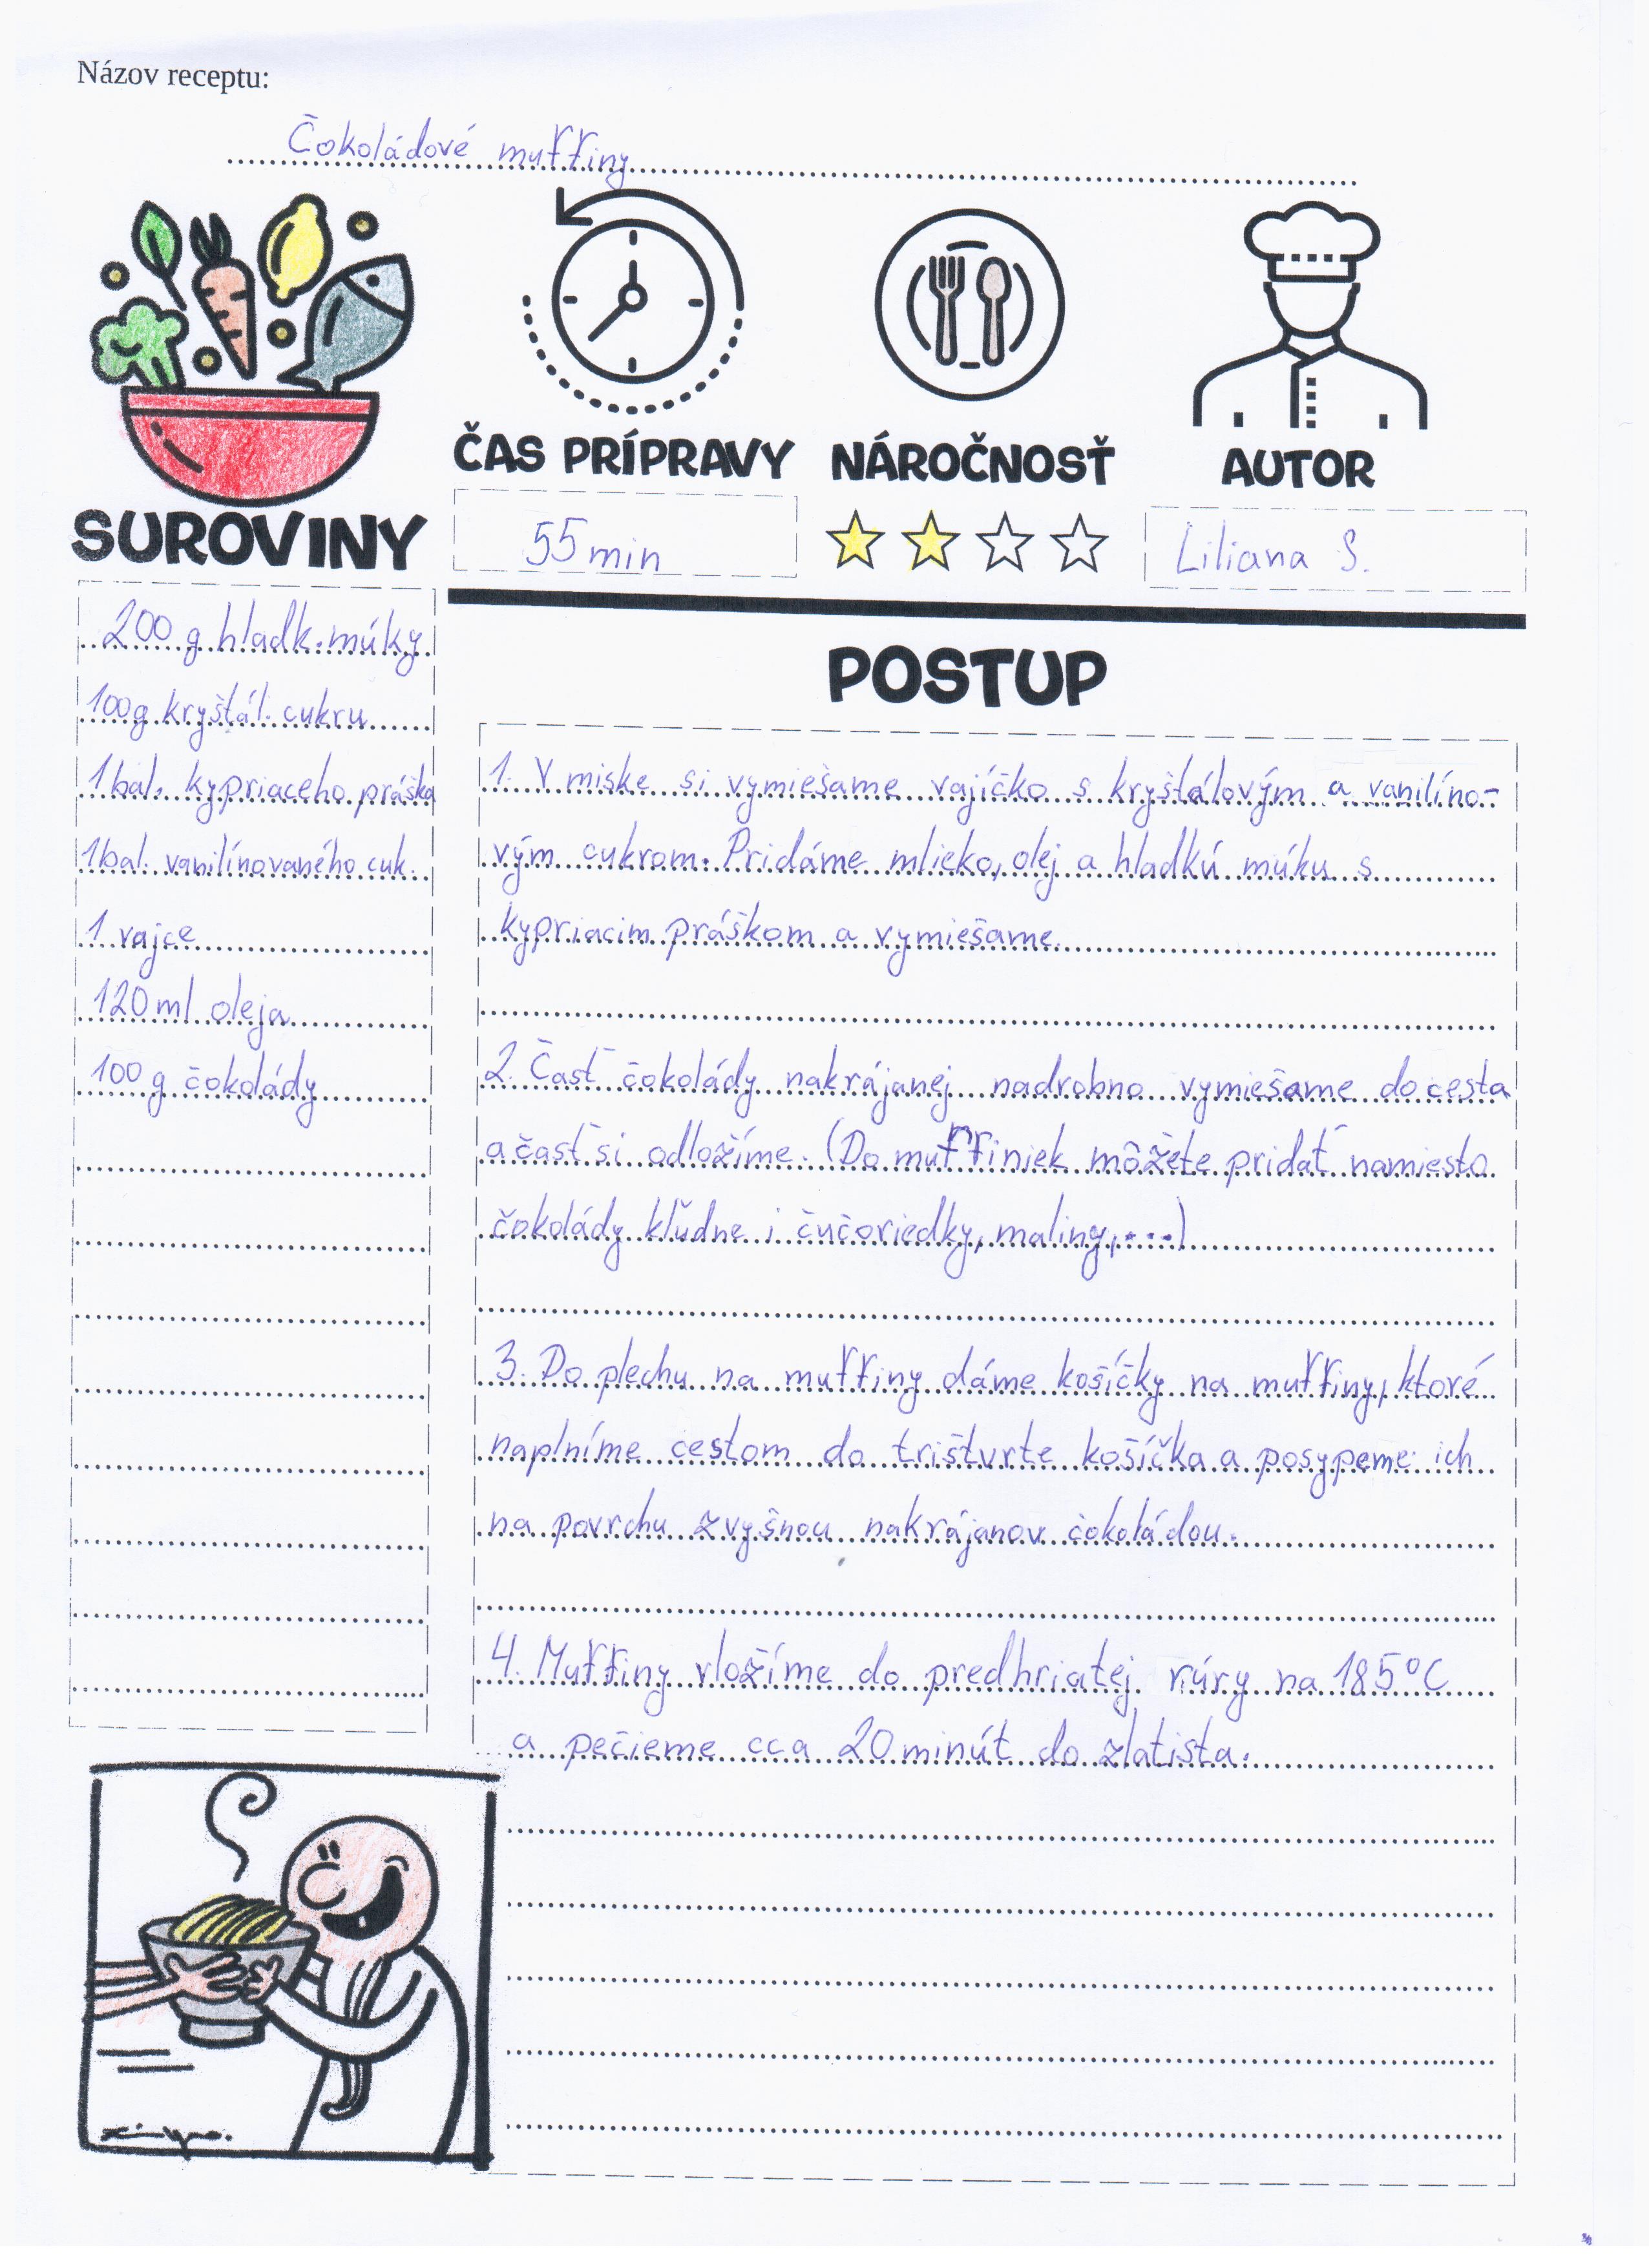 Názov receptu:
Čokoládové muffiny
ČAS PRÍPRAVY
NÁROČNOSŤ
AUTOR
55 min
Liliana S.
SUROVINY
200 g hladk. múky
100g kryštál. cukru
1 bal. kypriaceho práška
1 bal. vanilínovaného cuk.
1 vajce
120 ml oleja
100 g čokolády
POSTUP
1. V miske si vymiešame vajíčko s kryštálovým a vanilíno-
vým cukrom. Pridáme mlieko, olej a hladkú múku s
kypriacim práškom a vymiešame.
2. Časť čokolády nakrájanej nadrobno vymiešame do cesta
a časť si odložíme. (Do muffiniek môžete pridať namiesto
čokolády kľudne i čučoriedky, maliny,....)
3. Do plechu na muffiny dáme košíčky na muffiny, ktoré
naplníme cestom do trištvrte košíčka a posypeme ich
na povrchu zvyšnou nakrájanou čokoládou.
4. Muffiny vložíme do predhriatej rúry na 185°C
a pečieme cca 20 minút do zlatista.